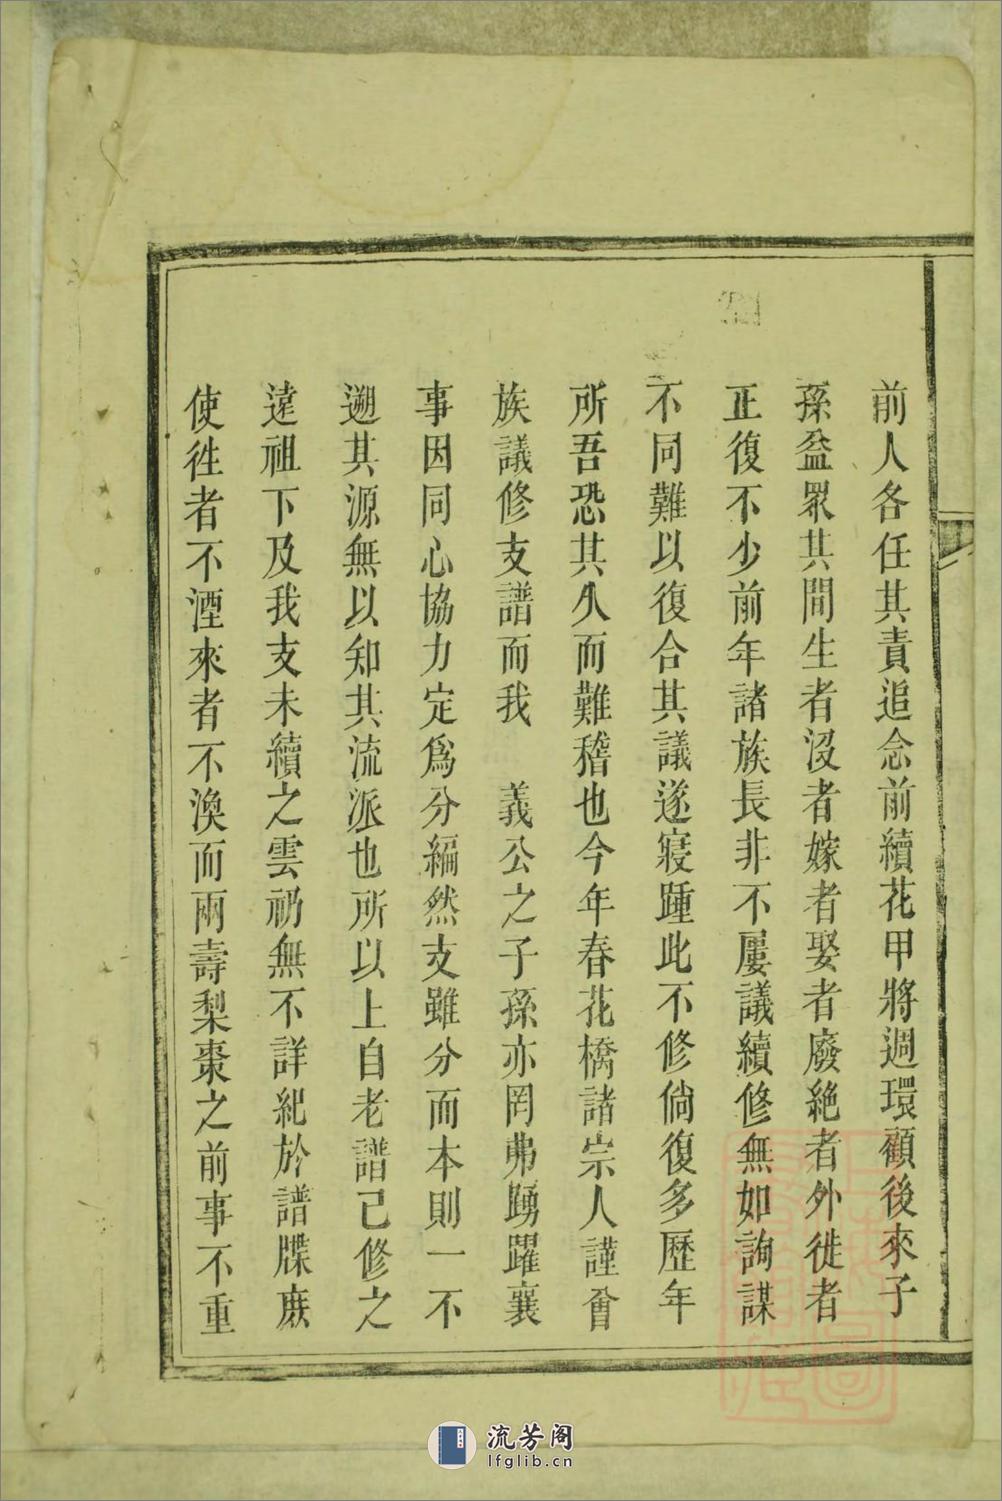 前人各任其責追念前續花甲將週環顧後來子
孫益眾其間生者沒者嫁者娶者廢絕者外徙者
正復不少前年諸族長非不屢議續修無如詢謀
不同難以復合其議遂寢踵此不修倘復多歷年
所吾恐其久而難稽也今年春花橋諸宗人謹會
族議修支譜而我　義公之子孫亦罔弗踴躍襄
事因同心協力定爲分編然支雖分而本則一不
遡其源無以知其流派也所以上自老譜已修之
遠祖下及我支未續之雲礽無不詳紀於譜牒庶
使徃者不湮來者不渙而兩壽梨棗之前事不重
流芳阁
lfglib.cn